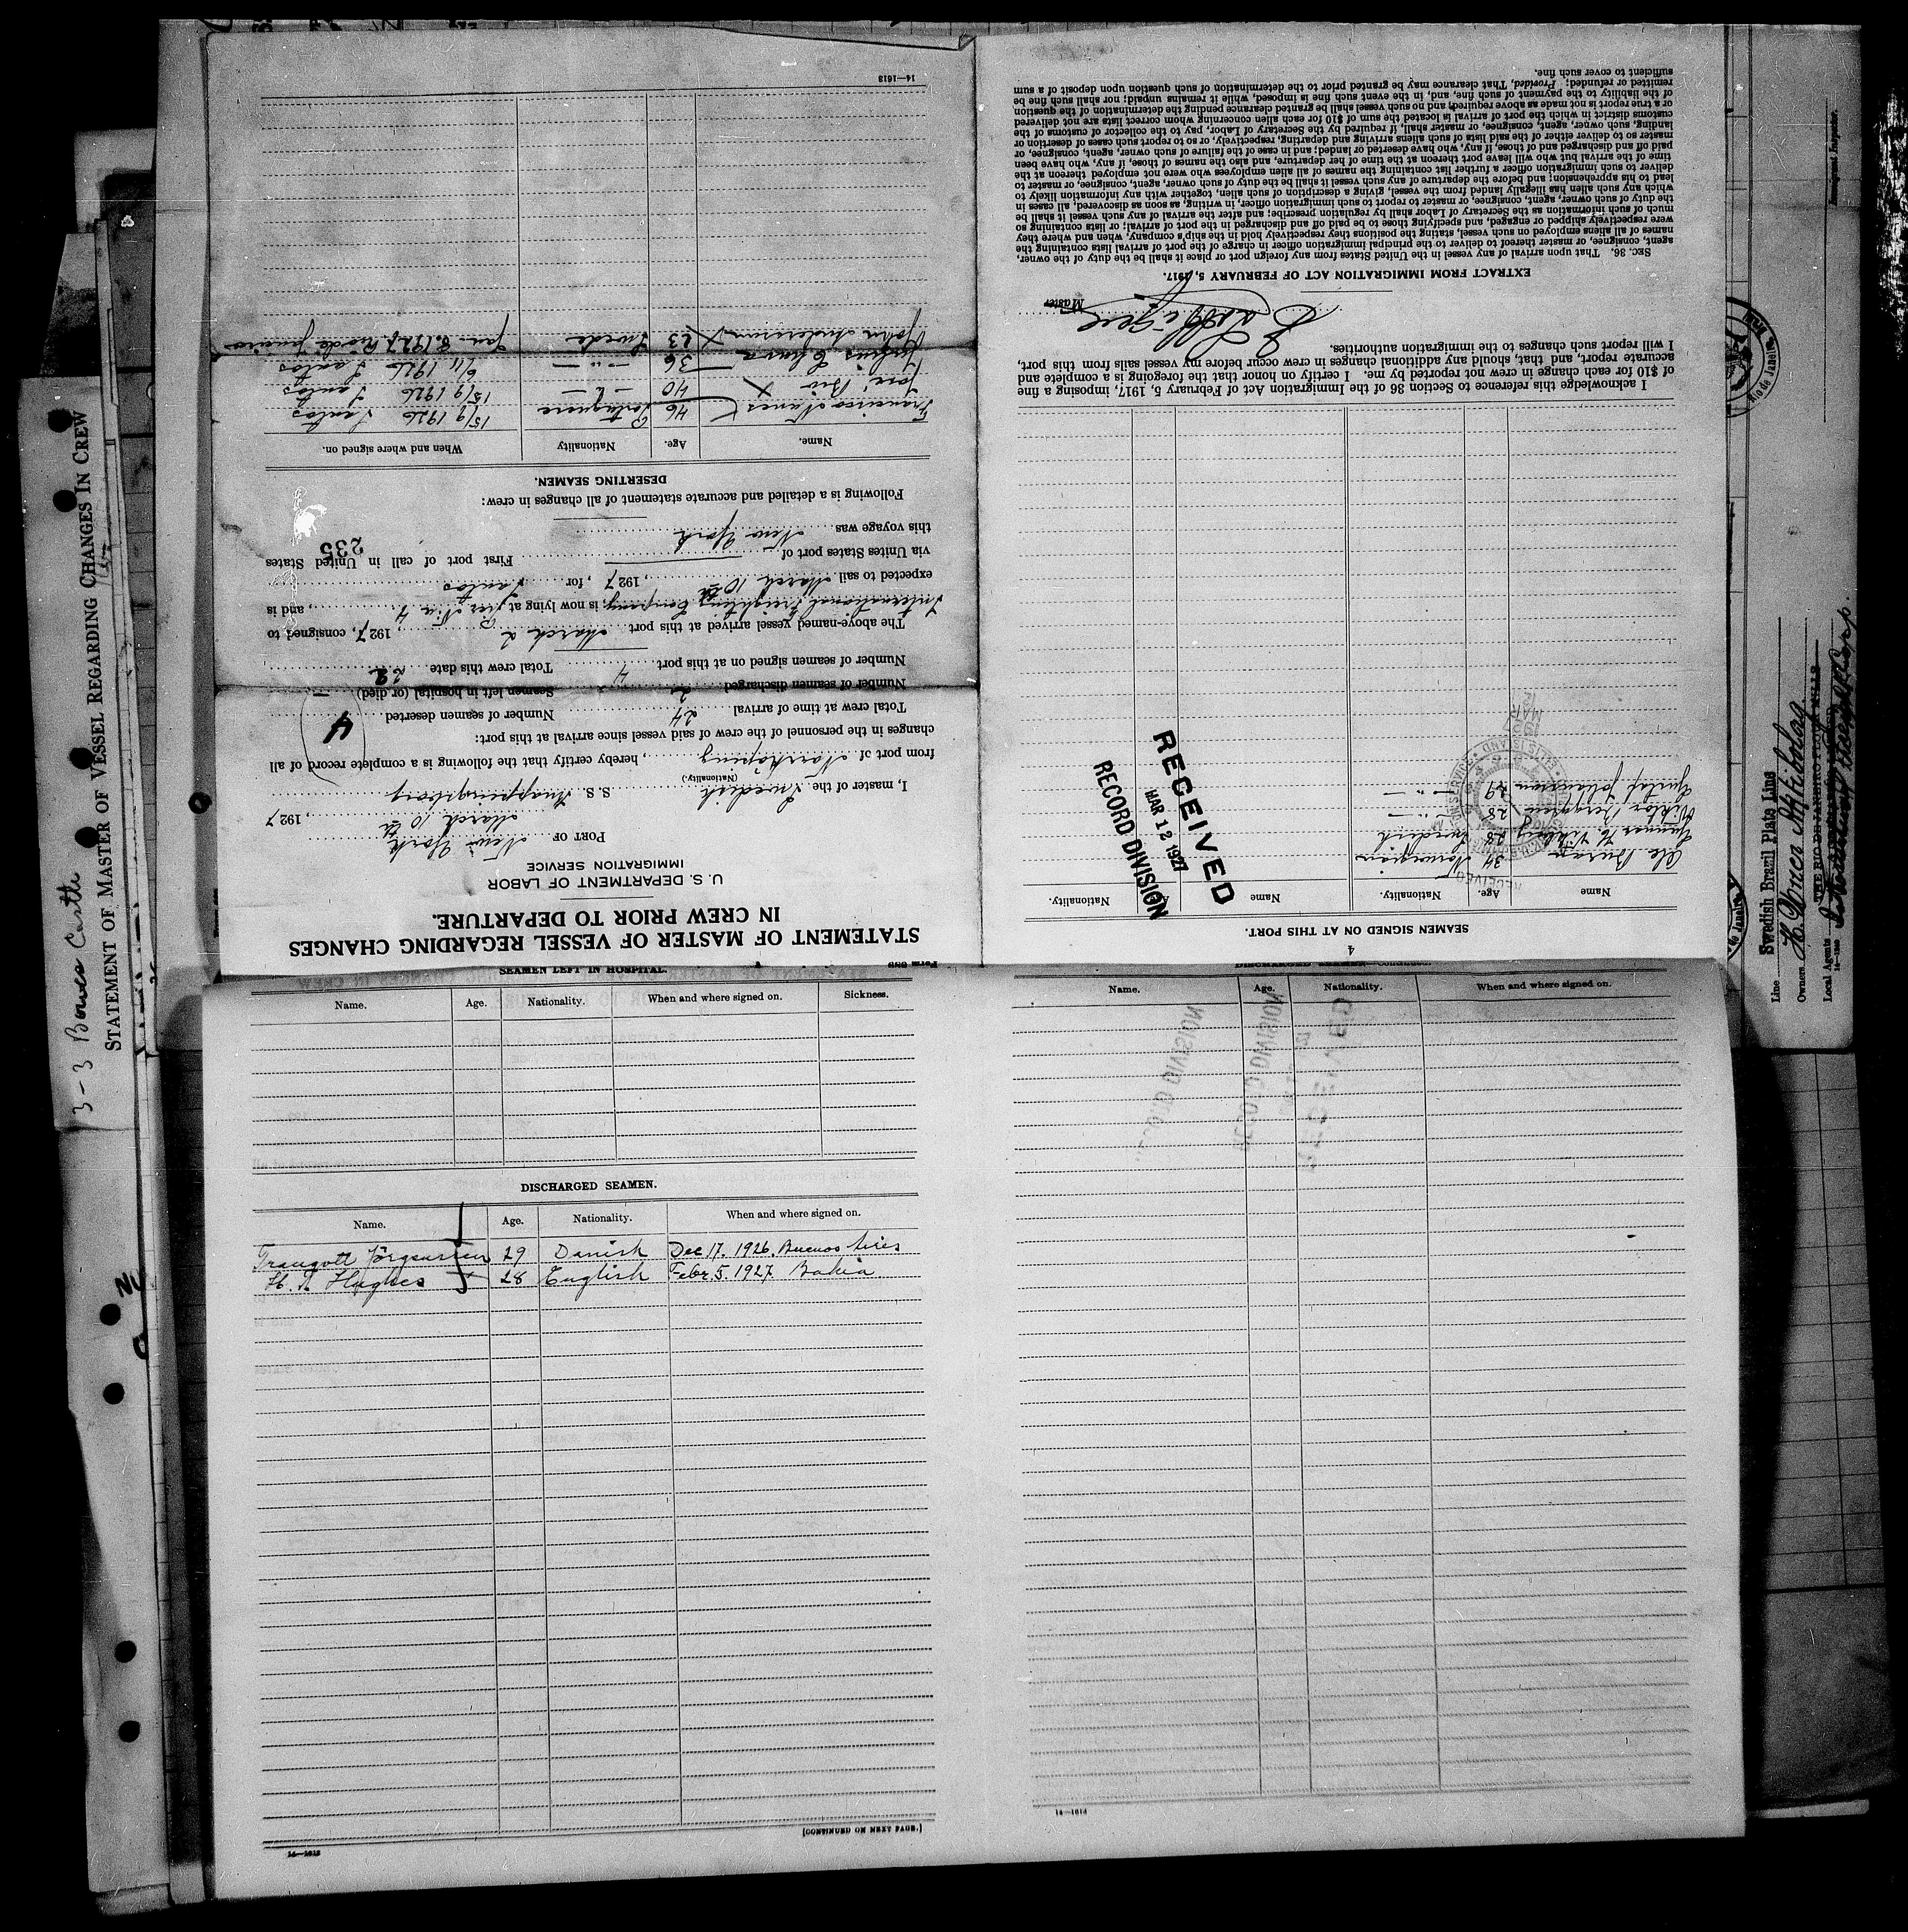 STATEMENT OF MASTER OF VESSEL REGARDING CHANGES
IN CREW PRIOR TO DEPARTURE.
U. S. DEPARTMENT OF LABOR
IMMIGRATION SERVICE
PORT OF New York
March 10th, 1927
I, master of the Swedish S. S. Knappingsborg
(Nationality.)
from port of Norrköping, hereby certify that the following is a complete record of all
changes in the personnel of the crew of said vessel since arrival at this port:
Total crew at time of arrival 24 Number of seamen deserted 4
Number of seamen discharged 2 Seamen left in hospital (or died) —
Number of seamen signed on at this port 4 Total crew this date 22
The above-named vessel arrived at this port March 2, 1927, consigned to
International Freighting Company, is now lying at Pier No 4, and is
expected to sail March 10th, 1927, for Santos
via Unites States port of First port of call in United States
this voyage was New York
235
Following is a detailed and accurate statement of all changes in crew:
DESERTING SEAMEN.
Name. Age. Nationality When and where signed on.
Francisco Nunes 46 Portuguese 15/9 1926 Santos
José 40 — " — 15/9 1926 Santos
36 — " — 6/11 1926 Santos
John Anderson 23 Swede Jan. 8. 1927 Rio de Janeiro
14—1613
4
SEAMEN SIGNED ON AT THIS PORT.
Name Age. Nationality. Name Nationality.
Ole 34 Norwegian
Gunnar H. 24 Swedish
Viktor Berggren 28 — " —
Gustaf Johansson 29 — " —
RECEIVED
MAR 12 1927
RECORD DIVISION
I acknowledge this reference to Section 36 of the Immigration Act of February 5, 1917, imposing a fine
of $10 for each change in crew not reported by me. I certify on honor that the foregoing is a complete and
accurate report, and that, should any additional changes in crew occur before my vessel sails from this port,
I will report such changes to the immigration authorities.
Master
EXTRACT FROM IMMIGRATION ACT OF FEBRUARY 5, 1917.
SEC. 36. That upon arrival of any vessel in the United States from any foreign port or place it shall be the duty of the owner,
agent, consignee, or master thereof to deliver to the principal immigration officer in charge of the port of arrival lists containing the
names of all aliens employed on such vessel, stating the positions they respectively hold in the ship's company, when and where they
were respectively shipped or engaged, and specifying those to be paid off and discharged in the port of arrival; or lists containing so
much of such information as the Secretary of Labor shall by regulation prescribe; and after the arrival of any such vessel it shall be
the duty of such owner, agent, consignee, or master to report to such immigration officer, in writing, as soon as discovered, all cases in
which any such alien has illegally landed from the vessel, giving a description of such alien, together with any information likely to
lead to his apprehension; and before the departure of any such vessel it shall be the duty of such owner, agent, consignee, or master to
deliver to such immigration officer a further list containing the names of all alien employees who were not employed thereon at the
time of the arrival but who will leave port thereon at the time of her departure, and also the names of those, if any, who have been
paid off and discharged and of those, if any, who have deserted or landed; and in case of the failure of such owner, agent, consignee, or
master so to deliver either of the said lists of such aliens arriving and departing, respectively, or so to report such cases of desertion or
landing, such owner, agent, consignee, or master shall, if required by the Secretary of Labor, pay to the collector of customs of the
customs district in which the port of arrival is located the sum of $10 for each alien concerning whom correct lists are not delivered
or a true report is not made as above required; and no such vessel shall be granted clearance pending the determination of the question
of the liability to the payment of such fine, and, in the event such fine is imposed, while it remains unpaid; nor shall such fine be
remitted or refunded; Provided, That clearance may be granted prior to the determination of such question upon deposit of a sum
sufficient to cover such fine.
SEAMEN LEFT IN HOSPITAL.
Name. Age. Nationality. When and where signed on. Sickness.
DISCHARGED SEAMEN.
Name. Age. Nationality. When and where signed on.
Traugott Jörgensen 29 Danish Dec 17. 1926. Buenos Aires
H. T. Hughes 28 English Febr. 5. 1927. Bahia
[CONTINUED ON NEXT PAGE.]
14—1613
Name. Age. Nationality. When and where signed on.
14—1613
3-3 Bowes Castle
STATEMENT OF MASTER OF VESSEL REGARDING CHANGES IN CREW
Line Swedish Brazil Plate Line
Owners
Local Agents
Immigrant Inspector.
Rio de Janeiro